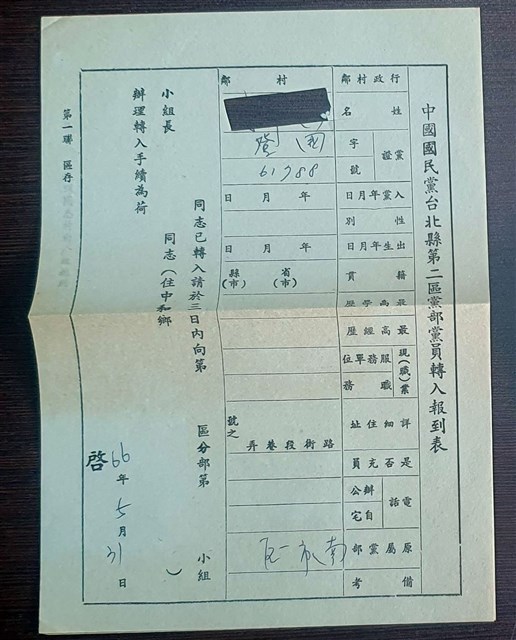 中國國民黨台北縣第二區黨部黨員轉入報到表
行政村鄰 村 鄰
姓名
黨證字號
入黨年月日 年 月 日
性別
出生年月日 年 月 日
籍貫 省(市) 縣(市)
最高學歷
最高經歷
現(職)業 服務單位 職務
詳細住址 路街段巷弄 號之
是否充員
電話 辦公 自宅
原屬黨部
備考
同志已轉入請於三日內向第 區分部第 小組
小組長 同志(住中和鄉 )
辦理轉入手續為荷
啓 66年5月31日
第一聯 區存